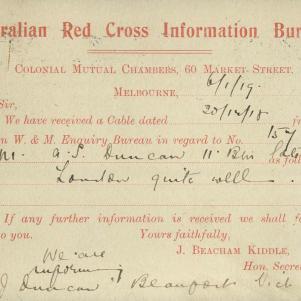 ralian Red Cross Information Bur
Colonial Mutual Chambers, 60 Market Street.
Melbourne, 6/1/19.
Sir,
We have received a Cable dated 20/12/18
n W. & M. Enquiry Bureau in regard to No. 157
A. S. Duncan 11. Bn as follo
London quite well
If any further information is received we shall fo
to you. Yours faithfully,
J. BEACHAM KIDDLE,
Hon. Secre
We are
informing
J Duncan Beaufort Vic